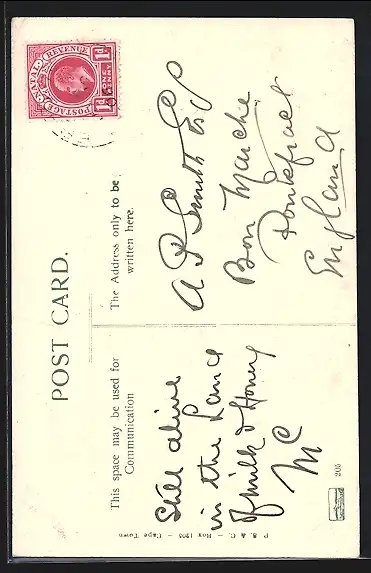 POST CARD.
This space may be used for
Communication
The Address only to be
written here.
NATAL
REVENUE
POSTAGE
1d
ONE
PENNY
1d
Still alive
in the Land
of milk & Honey
MC
A P Smith Esq
Bon Marche
Pontefract
England
P. S. & C. – Box 1205 – Cape Town
205